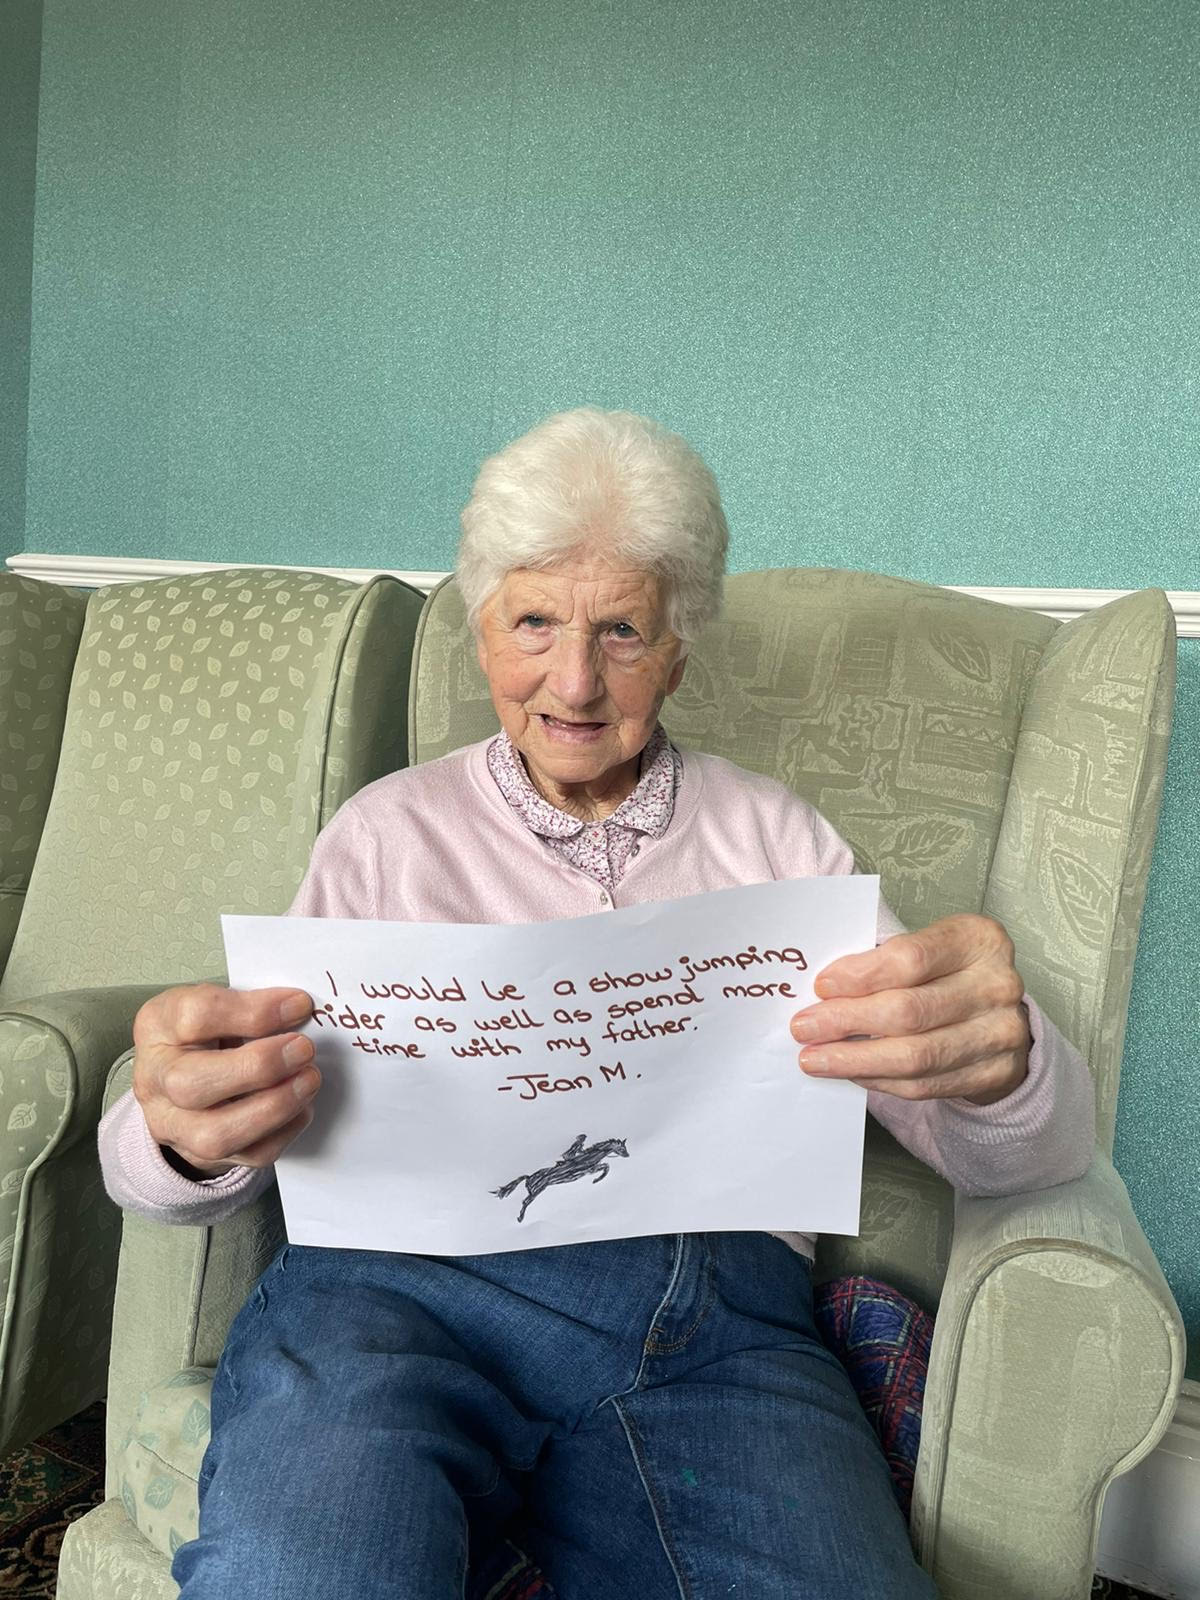 I would be a show jumping
rider as well as spend more
time with my father.
-Jean M.